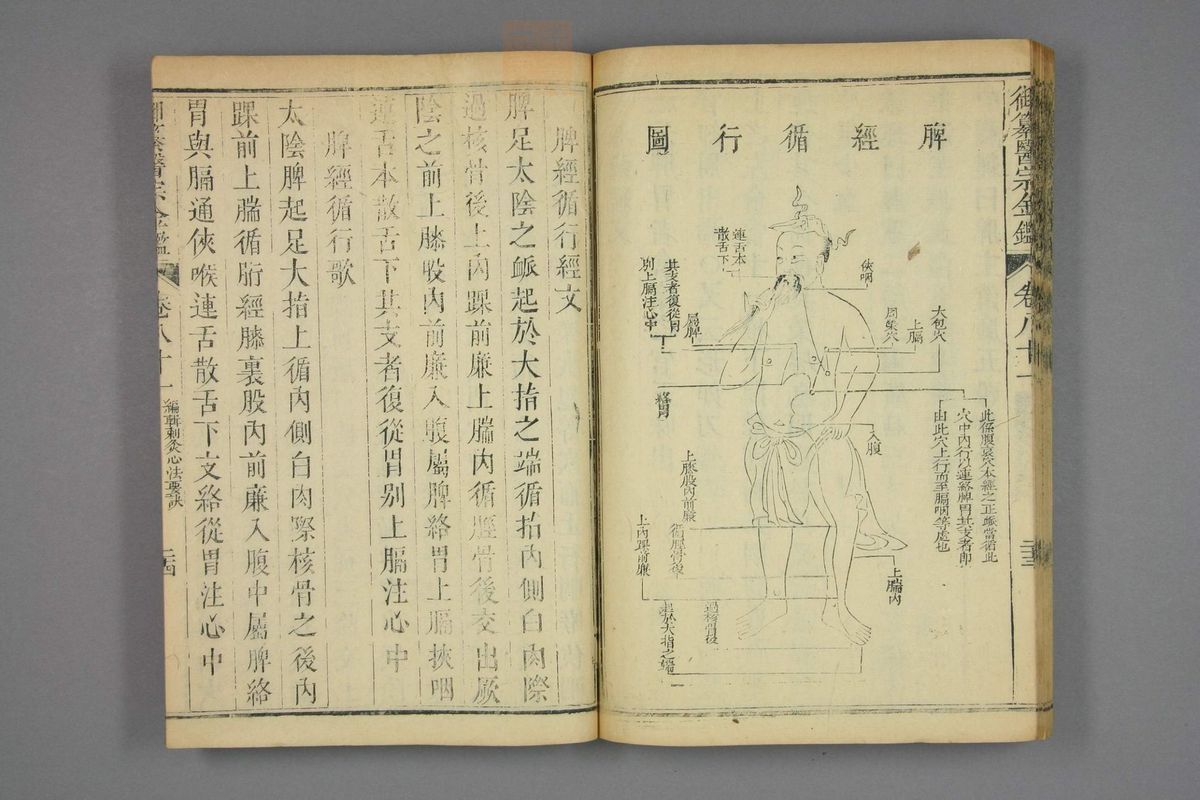 御纂醫宗金鑑 卷八十一 二十三
脾經循行圖
俠咽
連舌本
散舌下
其支者復從胃
別上膈注心中
屬脾
大包穴
上膈
周榮穴
絡胃
此係腹哀穴本經之正脈當循此
穴中內行以連絡脾胃其支者即
由此穴上行而至膈咽等處也
入腹
上膝股內前廉
循脛骨後
上內踝前廉
上腨內
過核骨後
起於大指之端
脾經循行經文
脾足太陰之脈起於大指之端循指內側白肉際
過核骨後上內踝前廉上腨內循脛骨後交出厥
陰之前上膝股內前廉入腹屬脾絡胃上膈挾咽
連舌本散舌下其支者復從胃别上膈注心中
脾經循行歌
太陰脾起足大指上循內側白肉際核骨之後內
踝前上腨循胻經膝裏股內前廉入腹中屬脾絡
胃與膈通俠喉連舌散舌下支絡從胃注心中
御纂醫宗金鑑 卷八十一 編輯刺灸心法要訣 二十四